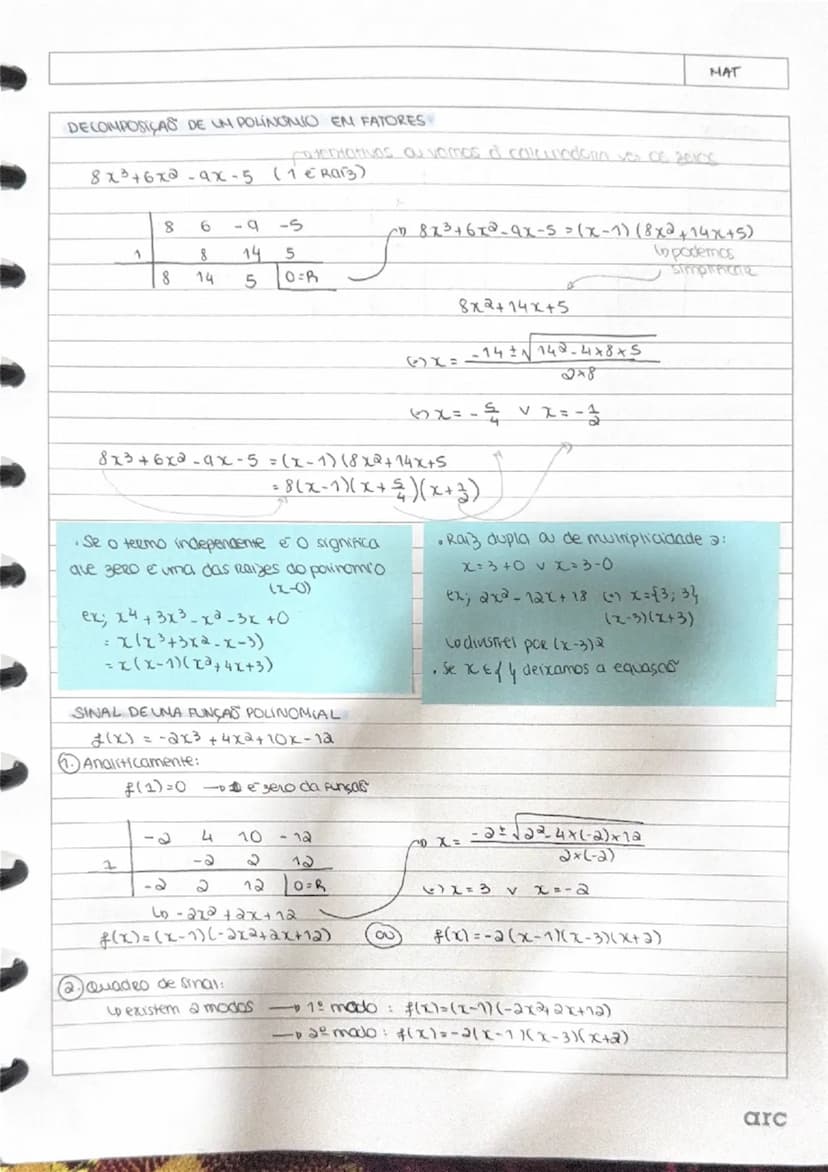 MAT
DECOMPOSIÇÃO DE UM POLINÓMIO EM FATORES
tentativas ou vamos à calculadora ver os zeros
8x³+6x²-9x-5 (1 é Raíz)
8 6 -9 -5
1 8 14 5
8 14 5 0=R
8x³+6x²-9x-5=(x-1)(8x²+14x+5)
↳podemos
simplificar
8x²+14x+5
(=) x = -14±√14²-4×8×5
2×8
(=) x=-5/4 v x=-1/2
8x³+6x²-9x-5=(x-1)(8x²+14x+5
=8(x-1)(x+5/4)(x+1/2)
. Se o termo independente é 0 significa
que zero é uma das Raízes do polinómio
(x-0)
ex; x4 + 3x³-x²-3x+0
= x(x³+3x²-x-3)
= x(x-1)(x²+4x+3)
. Raíz dupla ou de multiplicidade 2:
x=3+0 v x=3-0
ex; 2x²-12x+18 (=) x={3; 3}
(x-3)(x+3)
↳divisível por (x-3)²
. Se x ∈ { } deixamos a equação
SINAL DE UMA FUNÇÃO POLINOMIAL
f(x) = -2x³+4x²+10x-12
1. Analiticamente:
f(1)=0 → 1 é zero da função
-2 4 10 -12
1 -2 2 12
-2 2 12 0=R
↳ -2x²+2x+12
x = -2±√2²-4×(-2)×12
2×(-2)
(=) x=3 v x=-2
f(x)=(x-1)(-2x²+2x+12) ou f(x)=-2(x-1)(x-3)(x+2)
2. Quadro de sinal:
↳existem 2 modos → 1º modo: f(x)=(x-1)(-2x²+2x+12)
→ 2º modo: f(x)=-2(x-1)(x-3)(x+2)
arc